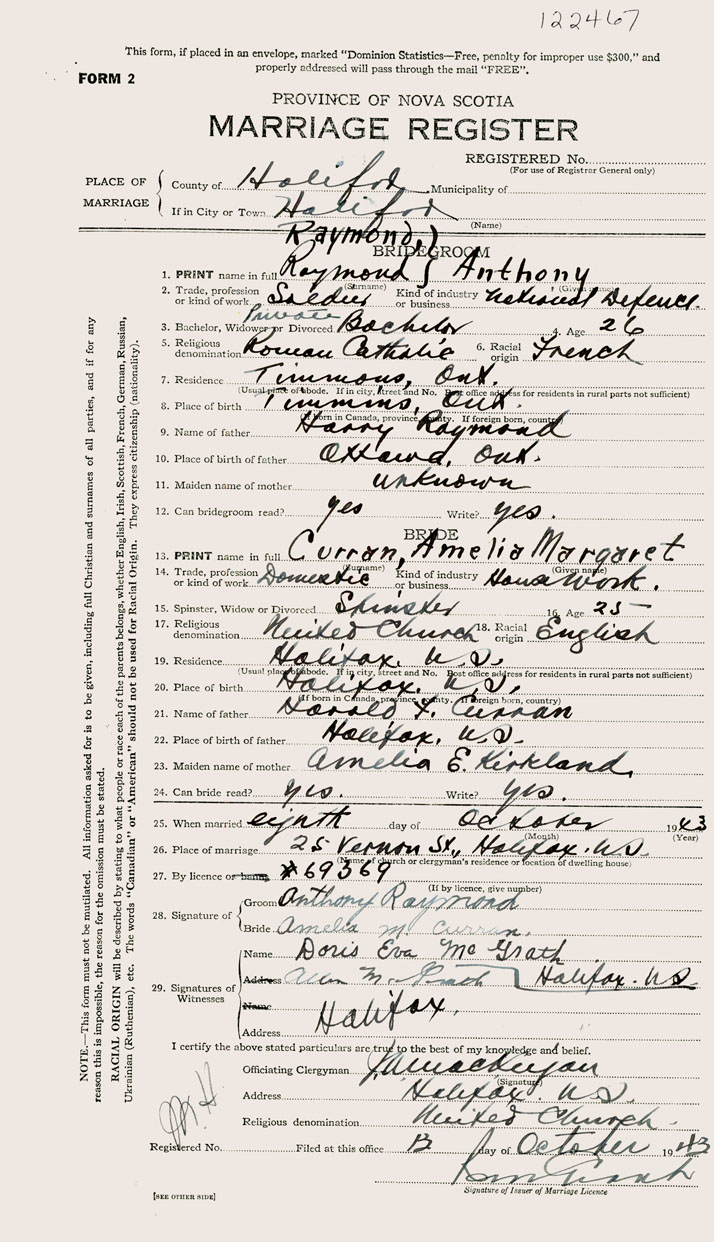 122467
This form, if placed in an envelope, marked "Dominion Statistics—Free, penalty for improper use $300," and
properly addressed will pass through the mail "FREE".
FORM 2
PROVINCE OF NOVA SCOTIA
MARRIAGE REGISTER
REGISTERED No.
(For use of Registrar General only)
PLACE OF MARRIAGE
County of Halifax Municipality of
If in City or Town Halifax
(Name)
Raymond,
BRIDEGROOM
1. PRINT name in full Raymond } Anthony
(Surname) (Given name)
2. Trade, profession or kind of work Soldier Kind of industry or business National Defence.
Private
3. Bachelor, Widower or Divorced Bachelor 4. Age 26
5. Religious denomination Roman Catholic 6. Racial origin French
7. Residence Timmons, Ont.
(Usual place of abode. If in city, street and No. Post office address for residents in rural parts not sufficient)
8. Place of birth Timmins, Ont.
(If born in Canada, province, county. If foreign born, country)
9. Name of father Harry Raymond
10. Place of birth of father Ottawa, Ont.
11. Maiden name of mother unknown
12. Can bridegroom read? yes Write? yes.
BRIDE
13. PRINT name in full Curran, Amelia Margaret
(Surname) (Given name)
14. Trade, profession or kind of work Domestic Kind of industry or business House Work.
15. Spinster, Widow or Divorced Spinster 16. Age 25
17. Religious denomination United Church 18. Racial origin English
19. Residence Halifax. N.S.
(Usual place of abode. If in city, street and No. Post office address for residents in rural parts not sufficient)
20. Place of birth Halifax. N.S.
(If born in Canada, province, county. If foreign born, country)
21. Name of father Harold F. Curran
22. Place of birth of father Halifax. N.S.
23. Maiden name of mother Amelia E. Kirkland
24. Can bride read? yes. Write? yes.
25. When married day of October 1943
(Month) (Year)
26. Place of marriage 25 Vernon St., Halifax. N.S.
(Name of church or clergyman's residence or location of dwelling house)
27. By licence or banns #69369
(If by licence, give number)
28. Signature of
Groom Anthony Raymond
Bride Amelia M. Curran.
29. Signatures of Witnesses
Name Doris Eva McGrath
Address Allen McGrath Halifax. N.S.
Name
Address Halifax.
I certify the above stated particulars are true to the best of my knowledge and belief.
Officiating Clergyman
(Signature)
Address Halifax. N.S.
Religious denomination United Church.
Registered No. Filed at this office 13 day of October 1943
Signature of Issuer of Marriage Licence
[SEE OTHER SIDE]
NOTE.—This form must not be mutilated. All information asked for is to be given, including full Christian and surnames of all parties, and if for any
reason this is impossible, the reason for the omission must be stated.
RACIAL ORIGIN will be described by stating to what people or race each of the parents belongs, whether English, Irish, Scottish, French, German, Russian,
Ukrainian (Ruthenian), etc. The words "Canadian" or "American" should not be used for Racial Origin. They express citizenship (nationality).